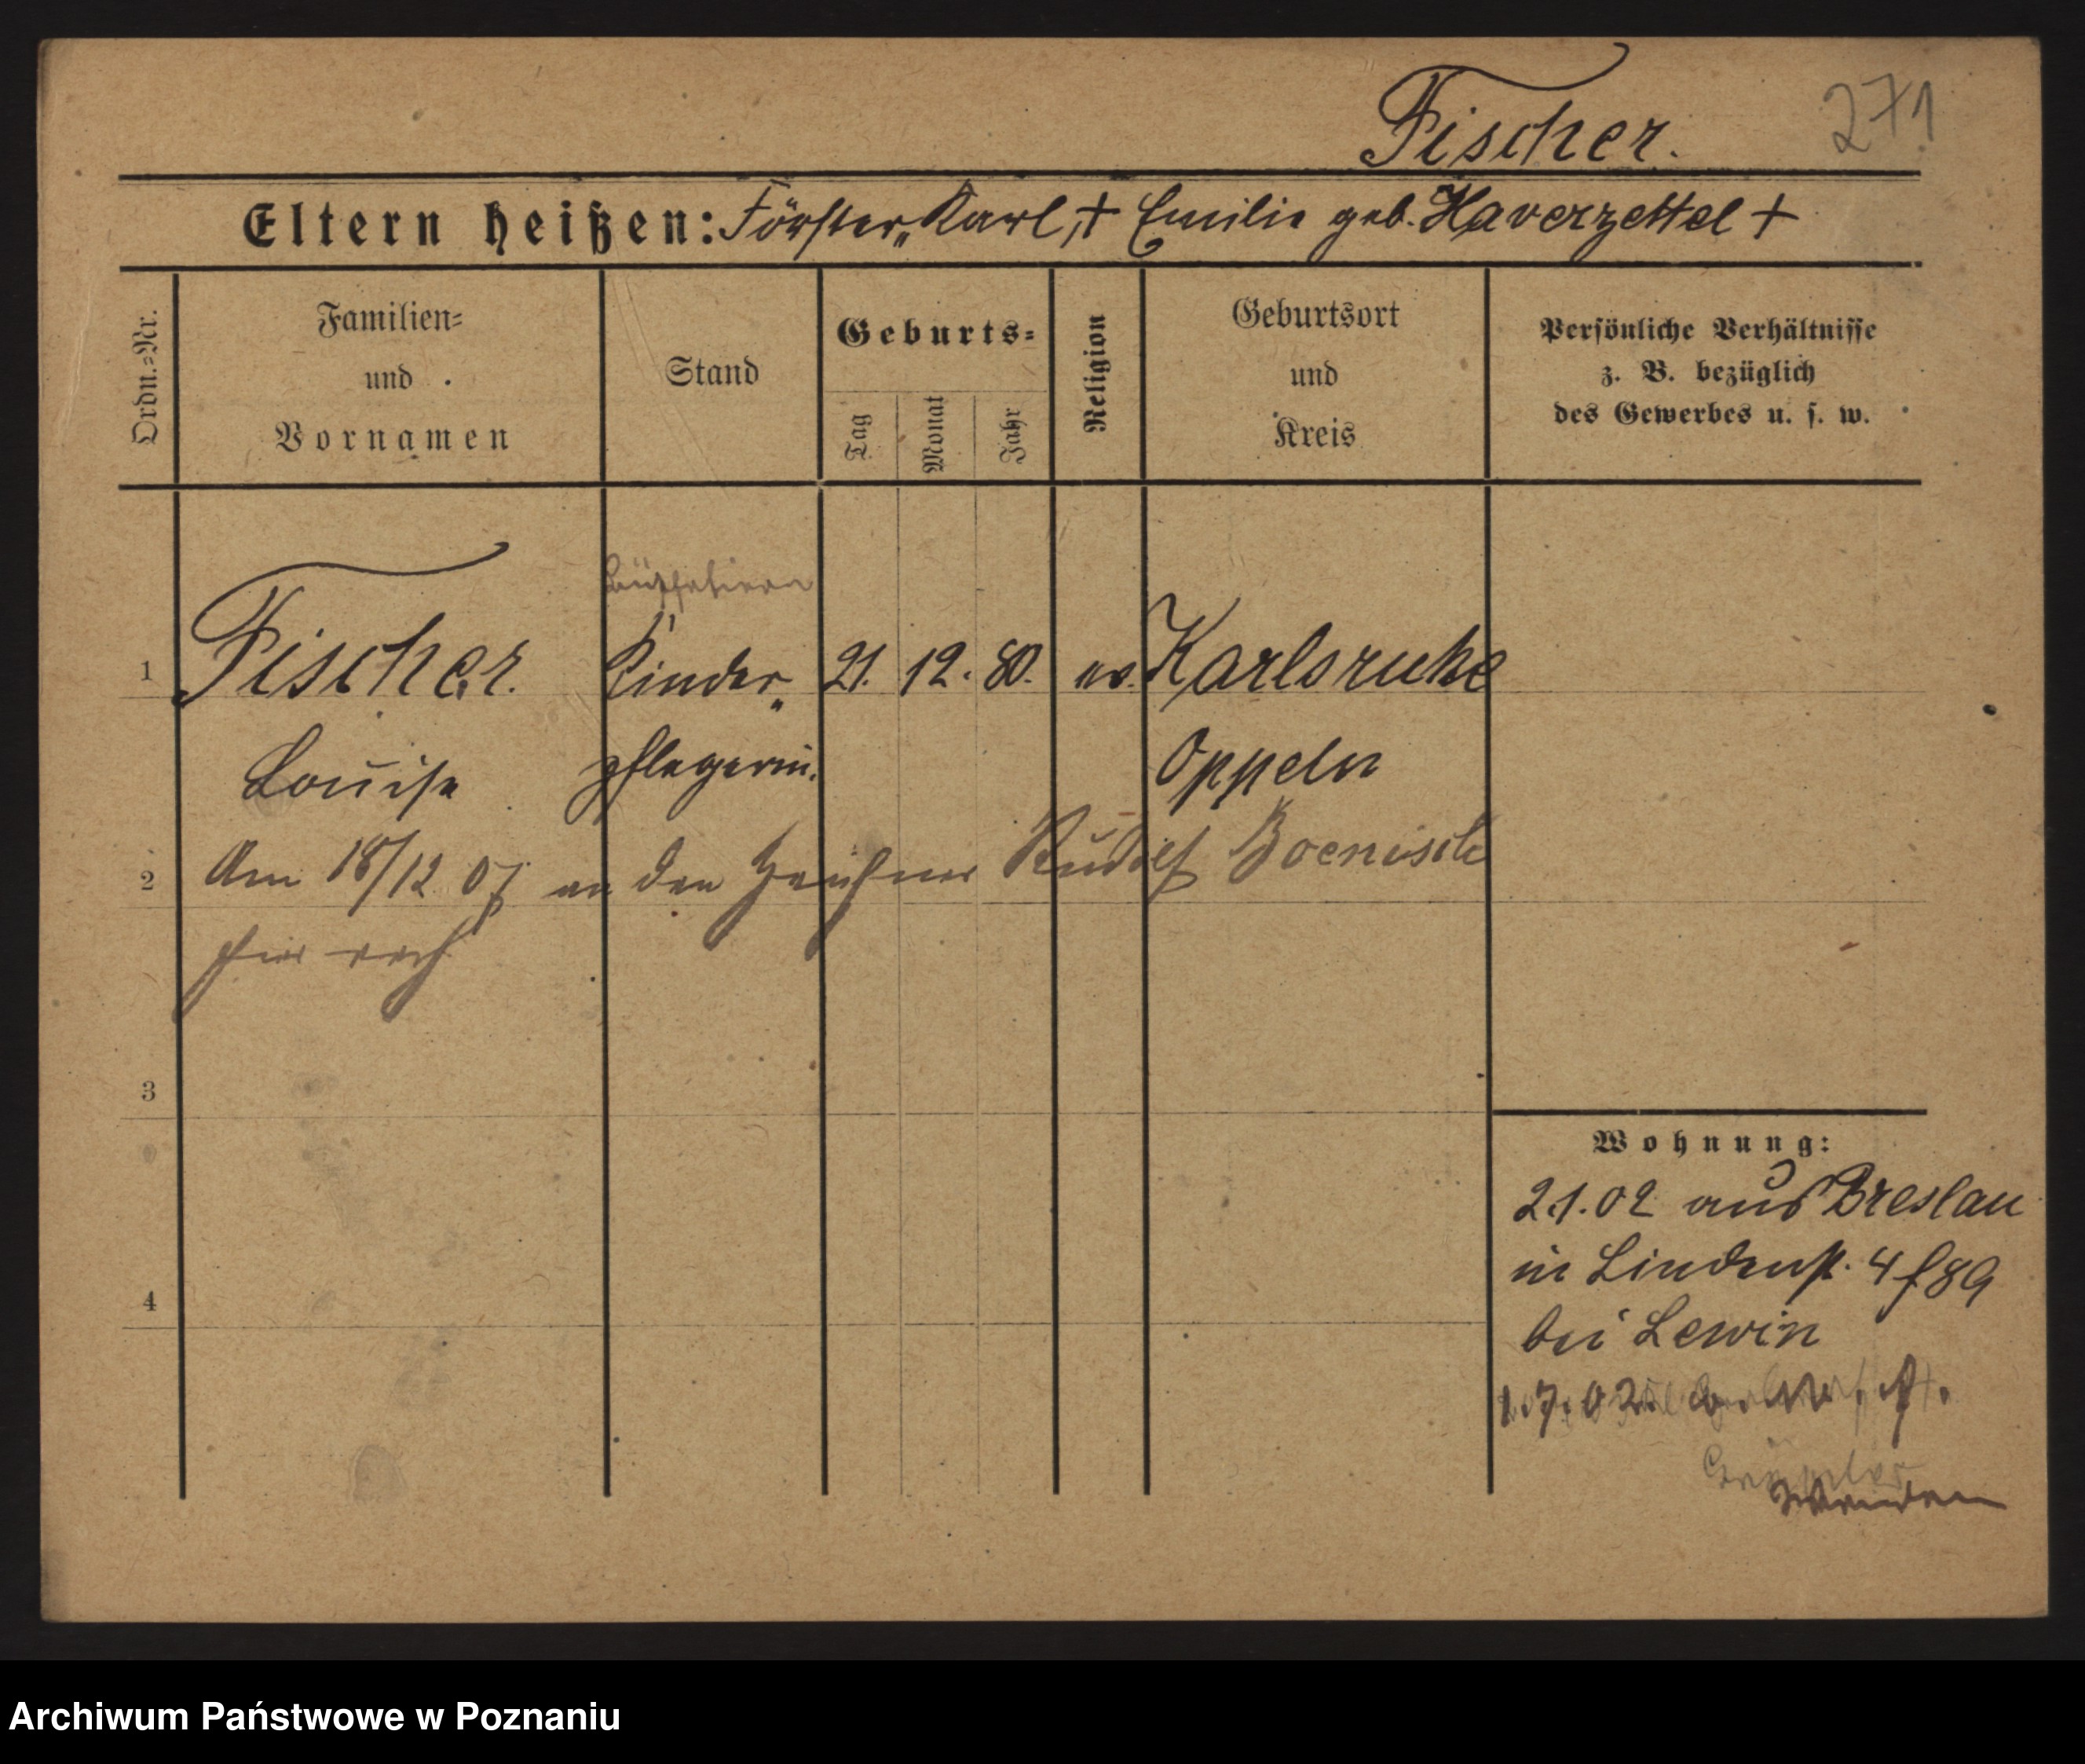 Fischer.
271
Eltern heißen: Förster, Karl, † Emilie geb. Haverzettel †
Ordn.=Nr.
Familien=
und
Vornamen
Stand
Geburts=
Tag
Monat
Jahr
Religion
Geburtsort
und
Kreis
Persönliche Verhältnisse
z. B. bezüglich
des Gewerbes u. s. w.
1 Fischer. Kinder„ 21. 12. 80. ev. Karlsruhe
Louise pflegerin. Oppeln
2 Am 18/12 07 an den Zeichner Rudolf Boenisch
hier verh
3
4
Wohnung:
2.1.02 aus Breslau
in Lindenst. 4
bei Lewin
1.7.02
Wenden
Archiwum Państwowe w Poznaniu